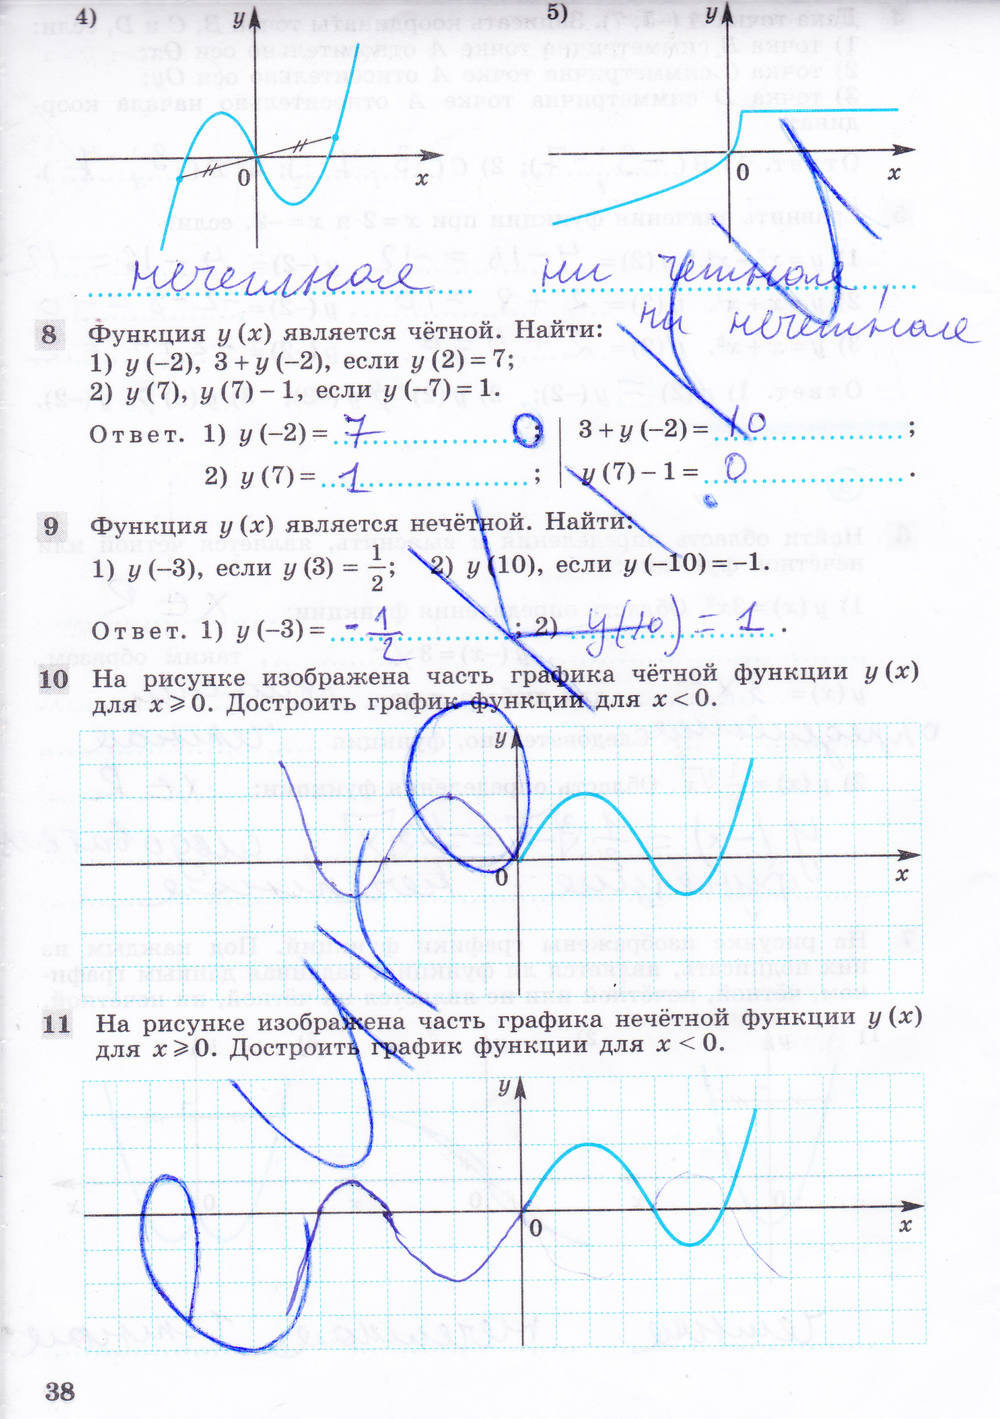 4) y 5) y
0 x 0 x
нечетная ни четная,
ни нечетная
8 Функция y (x) является чётной. Найти:
1) y (−2), 3 + y (−2), если y (2) = 7;
2) y (7), y (7) − 1, если y (−7) = 1.
Ответ. 1) y (−2) = 7 ; 3 + y (−2) = 10 ;
2) y (7) = 1 ; y (7) − 1 = 0 .
9 Функция y (x) является нечётной. Найти:
1) y (−3), если y (3) = 1/2; 2) y (10), если y (−10) = −1.
Ответ. 1) y (−3) = -1/2 ; 2) y(10) = 1 .
10 На рисунке изображена часть графика чётной функции y (x)
для x ⩾ 0. Достроить график функции для x < 0.
y
0 x
11 На рисунке изображена часть графика нечётной функции y (x)
для x ⩾ 0. Достроить график функции для x < 0.
y
0 x
38